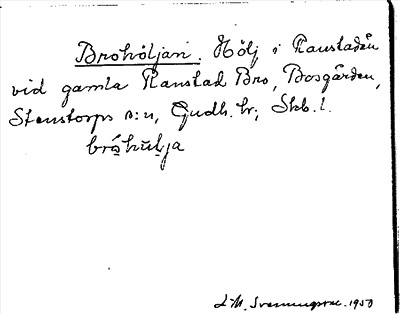 Brohöljan. Hölj i Ranstadån
vid gamla Ranstad Bro, Bosgården,
Stenstorps s:n, Gudh. hr; Skb. l.
bróhulja
L. M. Svenungsson. 1950